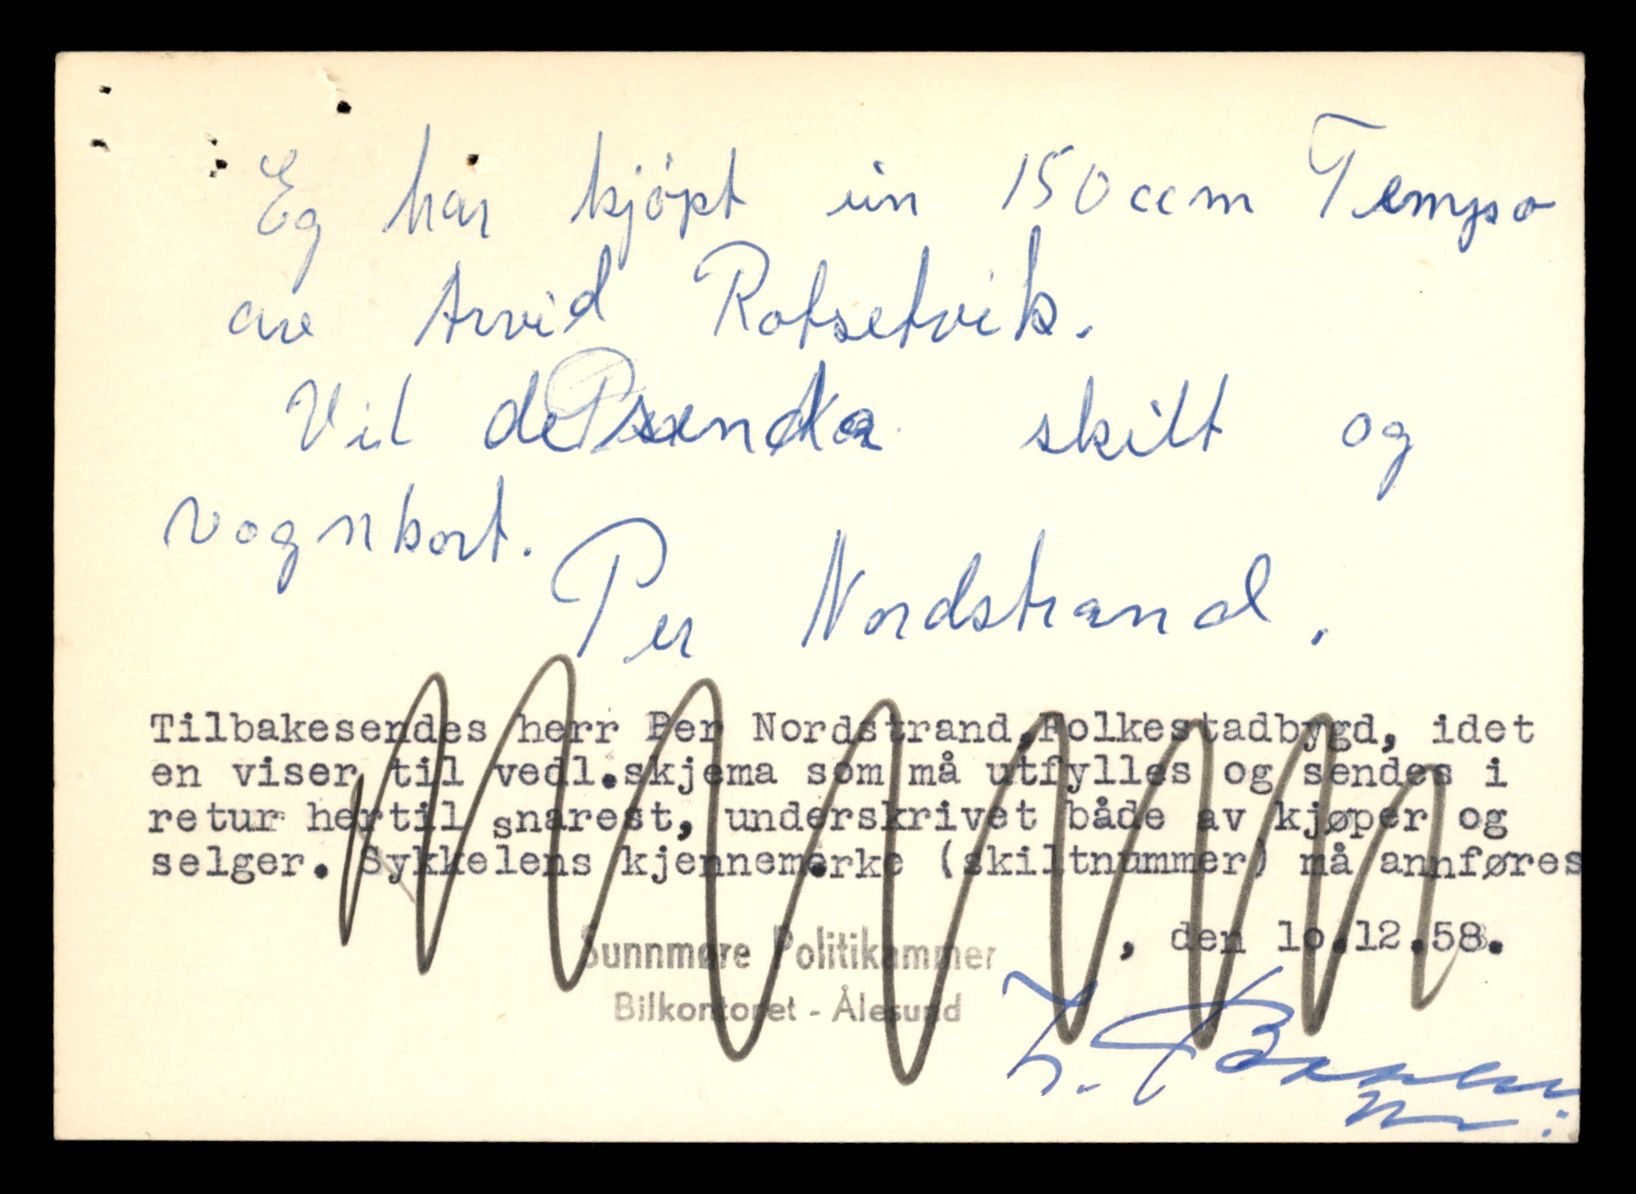 Eg har kjöpt ein 150 ccm Tempo
av Arvid Rotsetvik.
Vil de senda skilt og
vognkort.
Per Nordstrand.
Tilbakesendes herr Per Nordstrand,Folkestadbygd, idet
en viser til vedl.skjema som må utfylles og sendes i
retur hertil snarest, underskrivet både av kjøper og
selger. Sykkelens kjennemerke (skiltnummer) må annføres
, den 10.12.58.
Sunnmøre Politikammer
Bilkontoret - Ålesund